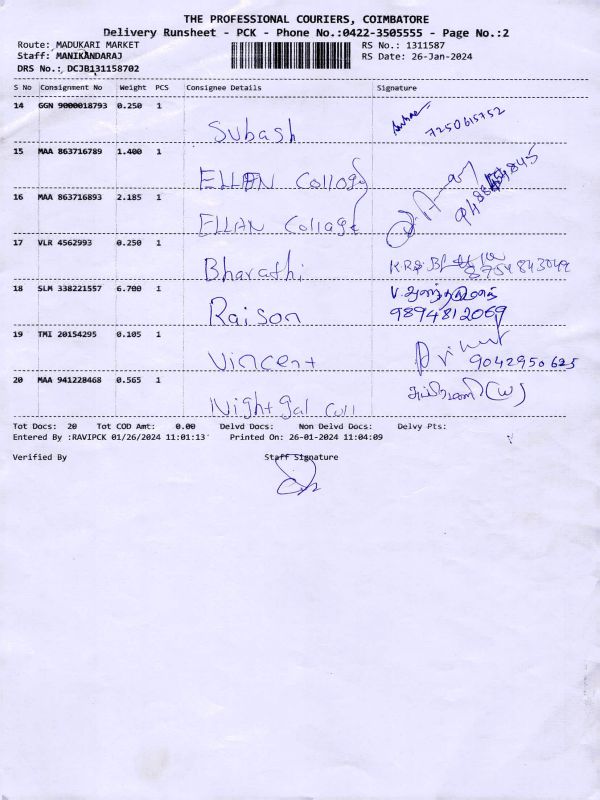 THE PROFESSIONAL COURIERS, COIMBATORE
Delivery Runsheet - PCK - Phone No.:0422-3505555 - Page No.:2
Route: MADUKARI MARKET RS No.: 1311587
Staff: MANIKANDARAJ RS Date: 26-Jan-2024
DRS No.: DCJB131158702
S No Consignment No Weight PCS Consignee Details Signature
14 GGN 9000018793 0.250 1
Subash 7250615752
15 MAA 863716789 1.400 1
ELLEN College
16 MAA 863716893 2.185 1
ELLAN Collage
17 VLR 4562993 0.250 1
Bharathi 8754843049
18 SLM 338221557 6.700 1
Raison 9894812069
19 TMI 20154295 0.105 1
Vincent 9042950625
20 MAA 941228468 0.565 1
Nightgal (W)
Tot Docs: 20 Tot COD Amt: 0.00 Delvd Docs: Non Delvd Docs: Delvy Pts:
Entered By :RAVIPCK 01/26/2024 11:01:13 Printed On: 26-01-2024 11:04:09
Verified By Staff Signature